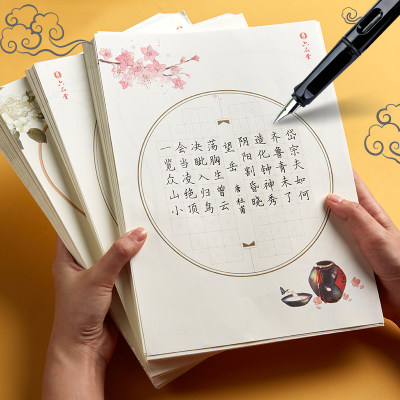 六品堂
六品堂
岱宗夫如何
齐鲁青未了
造化钟神秀
阴阳割昏晓
望岳 唐 杜甫
荡胸生曾云
决眦入归鸟
会当凌绝顶
一览众山小